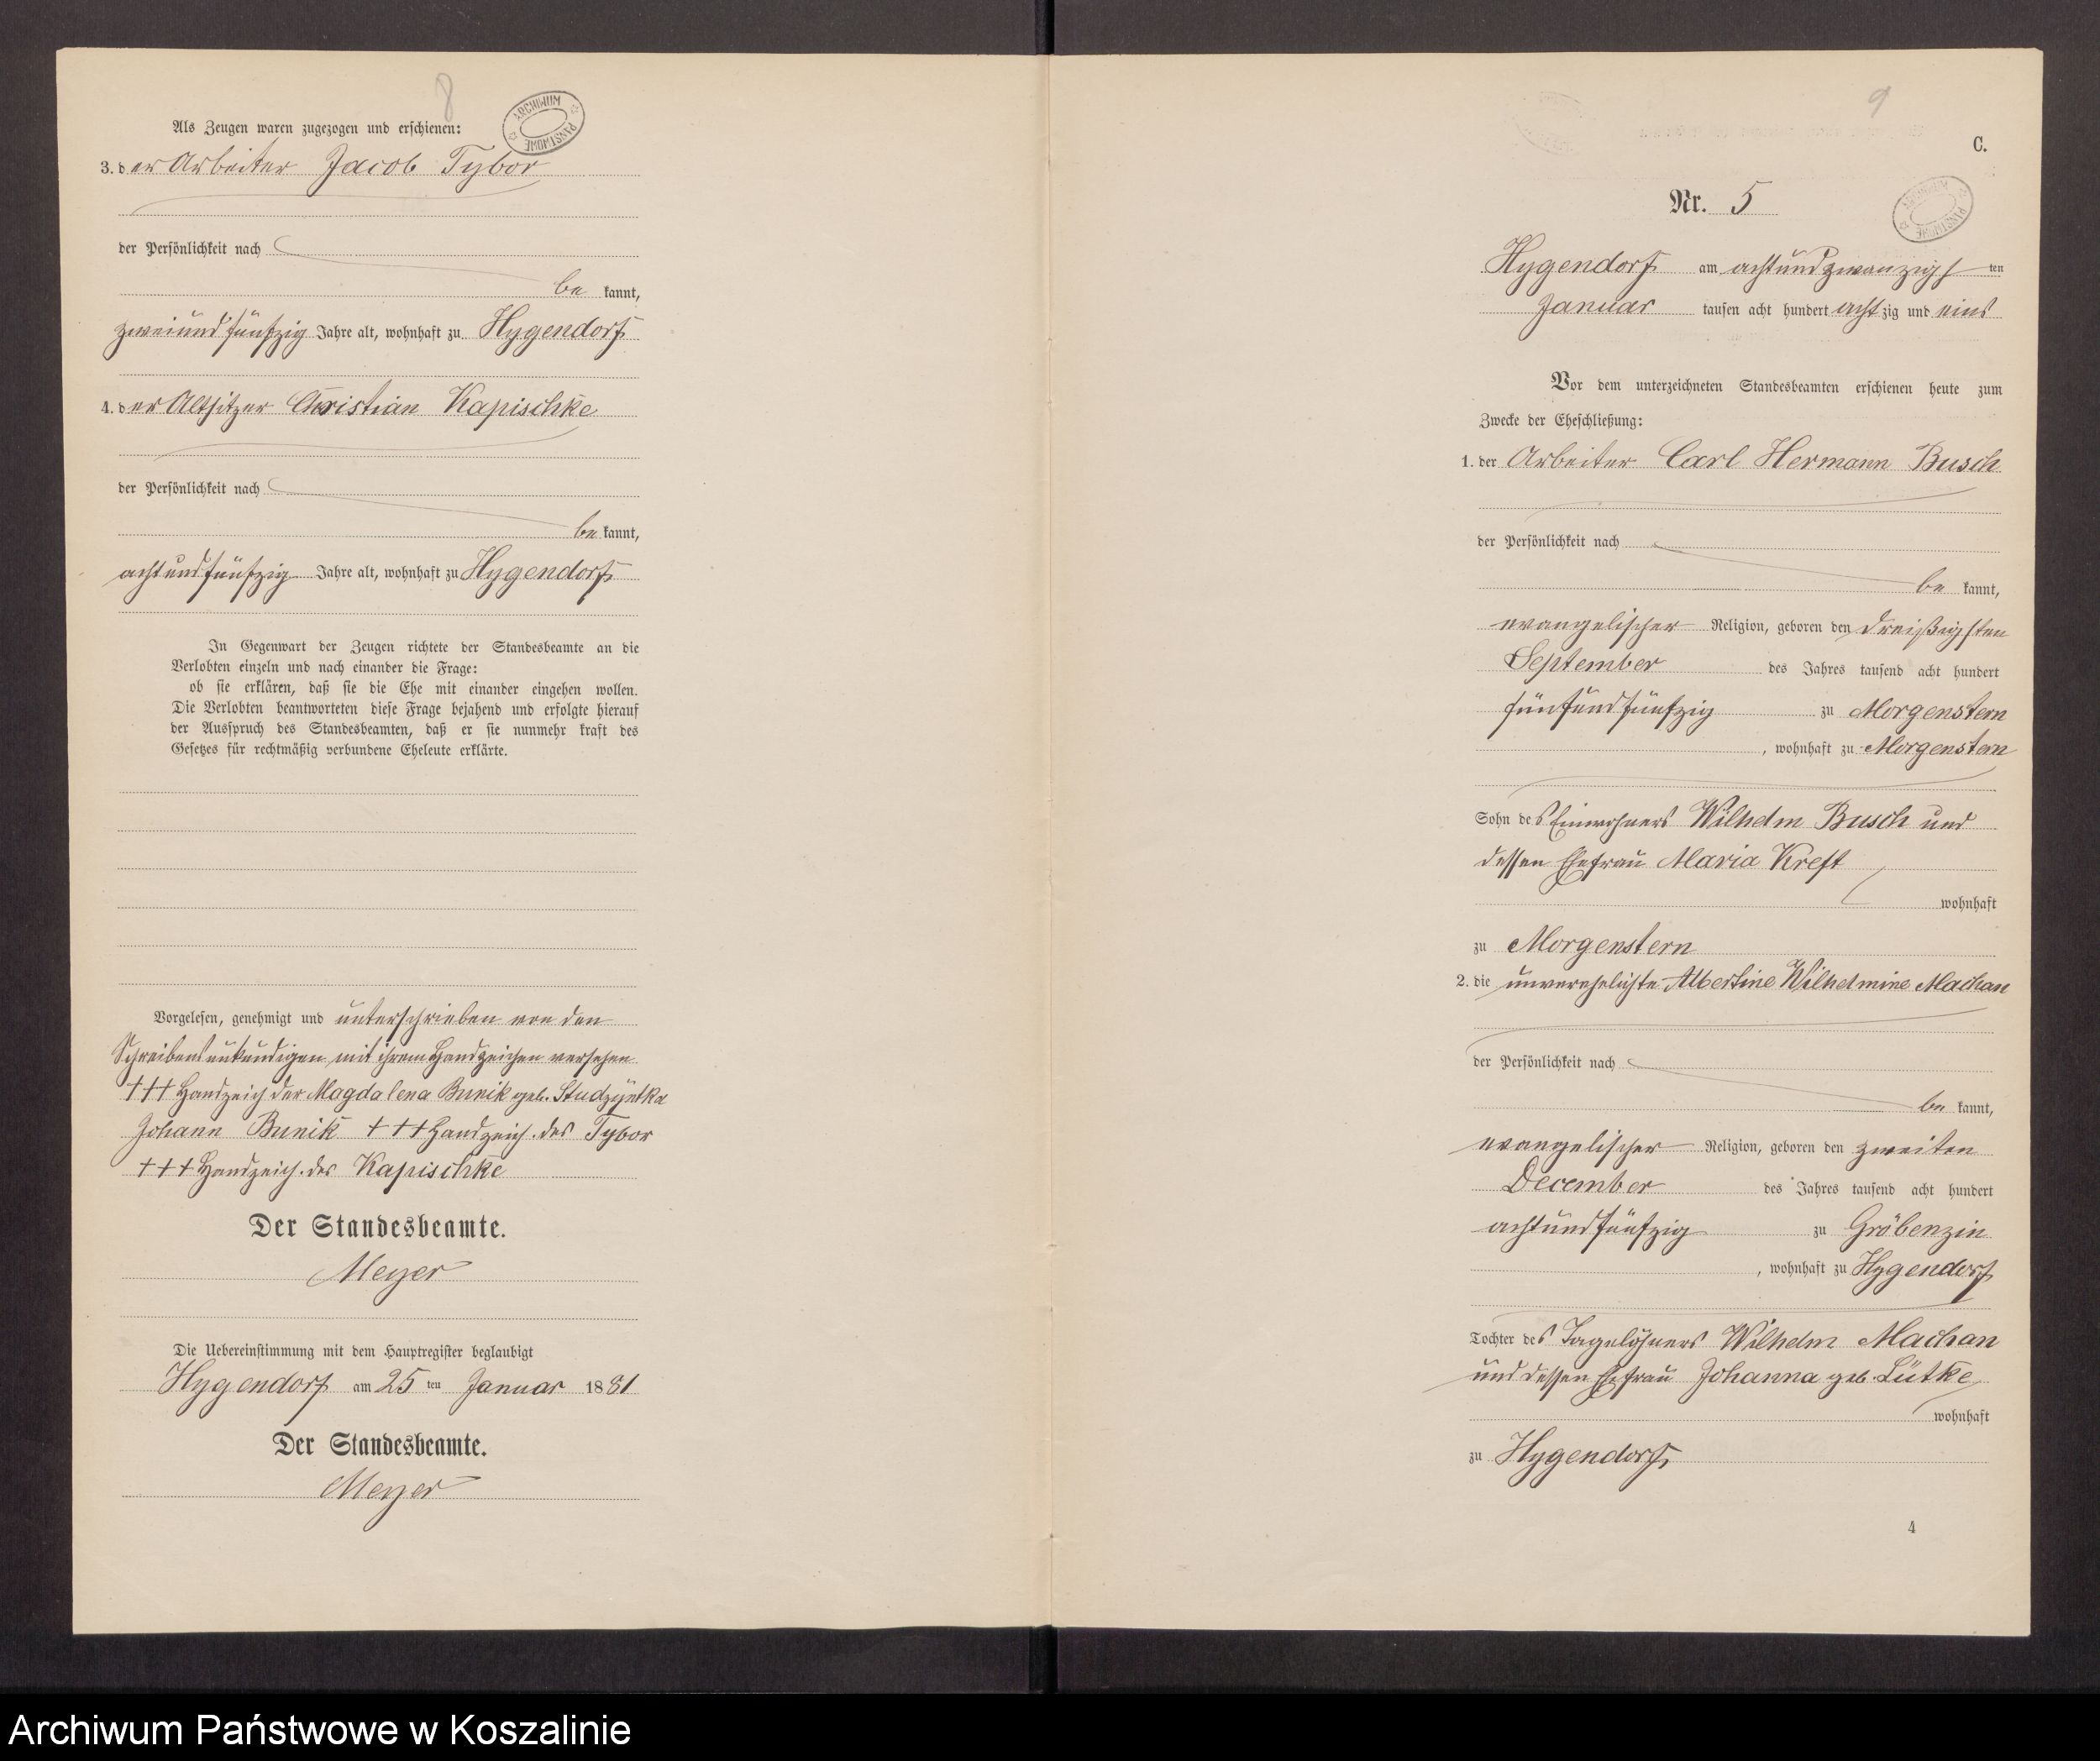 8
ARCHIWUM PAŃSTWOWE
Als Zeugen waren zugezogen und erschienen:
3. der Arbeiter Jacob Tybor
der Persönlichkeit nach
be kannt,
zweiundfünfzig Jahre alt, wohnhaft zu Hygendorf
4. der Altsitzer Christian Kapischke
der Persönlichkeit nach
be kannt,
achtundfünfzig Jahre alt, wohnhaft zu Hygendorf
In Gegenwart der Zeugen richtete der Standesbeamte an die
Verlobten einzeln und nach einander die Frage:
ob sie erklären, daß sie die Ehe mit einander eingehen wollen.
Die Verlobten beantworteten diese Frage bejahend und erfolgte hierauf
der Ausspruch des Standesbeamten, daß er sie nunmehr kraft des
Gesetzes für rechtmäßig verbundene Eheleute erklärte.
Vorgelesen, genehmigt und unterschrieben von den
Schreibensunkundigen mit ihrem Handzeichen versehen
+++ Handzeich der Magdalena Bunik geb.
Johann Bunik +++ Handzeich. des Tybor
+++ Handzeich. des Kapischke
Der Standesbeamte.
Meyer
Die Uebereinstimmung mit dem Hauptregister beglaubigt
Hygendorf am 25 ten Januar 1881
Der Standesbeamte.
Meyer
9
C.
ARCHIWUM PAŃSTWOWE
Nr. 5
Hygendorf am achtundzwanzigsten
Januar tausen acht hundert achtzig und eins
Vor dem unterzeichneten Standesbeamten erschienen heute zum
Zwecke der Eheschließung:
1. der Arbeiter Carl Hermann Busch
der Persönlichkeit nach
be kannt,
evangelischer Religion, geboren den dreißigsten
September des Jahres tausend acht hundert
fünfundfünfzig zu Morgenstern
, wohnhaft zu Morgenstern
Sohn des Einwohners Wilhelm Busch und
dessen Ehefrau Maria Kreft
wohnhaft
zu Morgenstern
2. die unverehelichte Albertine Wilhelmine Machan
der Persönlichkeit nach
be kannt,
evangelischer Religion, geboren den zweiten
December des Jahres tausend acht hundert
achtundfünfzig zu Gröbenzin
, wohnhaft zu Hygendorf
Tochter des Tagelöhners Wilhelm Machan
und dessen Ehefrau Johanna geb. Lütke
wohnhaft
zu Hygendorf
4
Archiwum Państwowe w Koszalinie